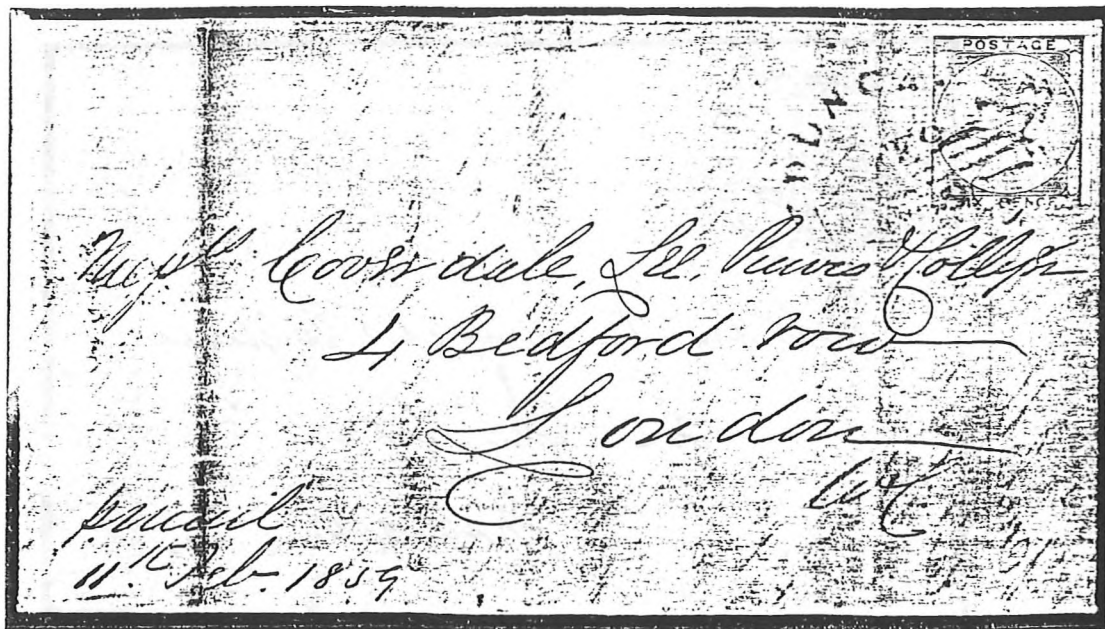 POSTAGE
SIX PENCE
Messrs Coverdale, Lee, Purvis & Collyer
4 Bedford row
London
WC
p mail
11th Feb. 1859